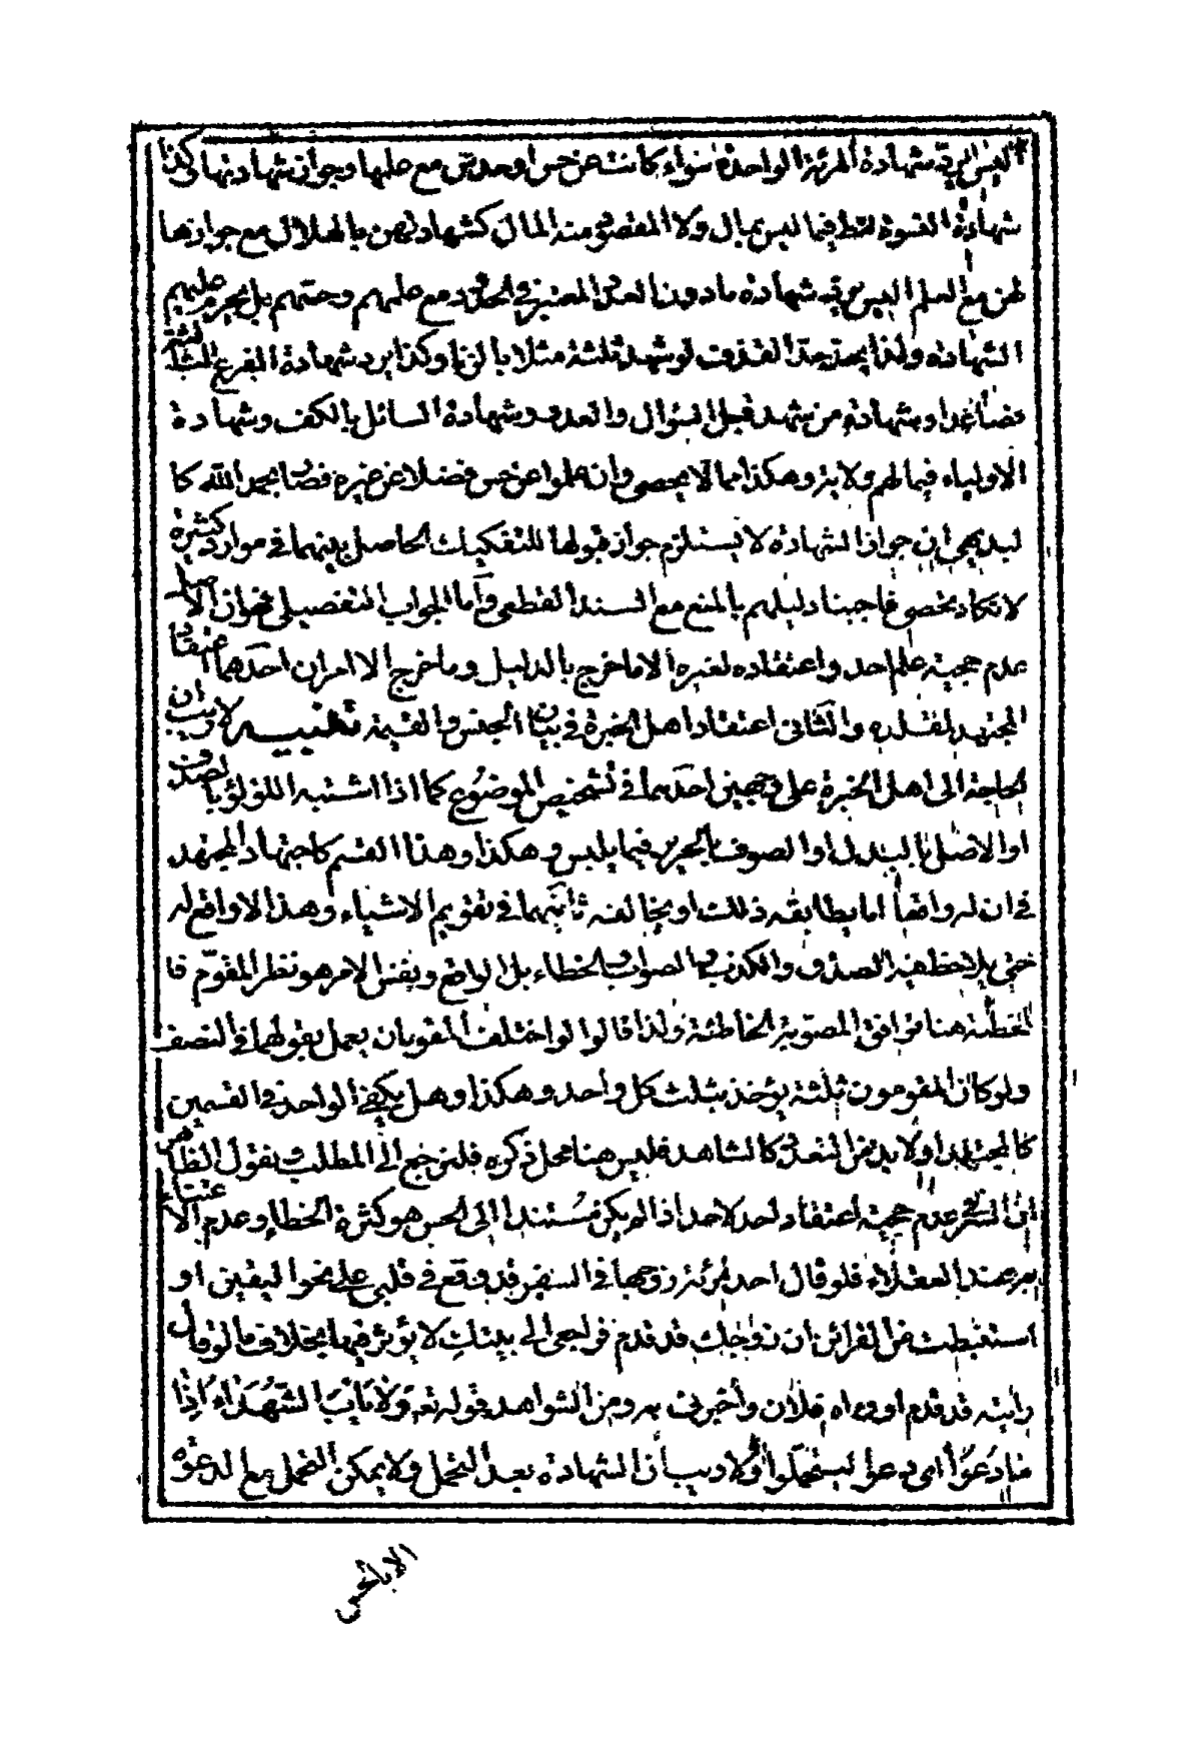 اليس يرد شهادة المرئة الواحدة سواء كانت عن حس او حدس مع علمها وجواز شهادتها كذا
شهادة النسوة فقط فيما ليس بمال ولا المقصود منه المال كشهادتهن بالهلال مع جوازها
لهن مع العلم اليس يرد شهادة ما دون العدد المعتبر في الحقوق مع علمهم وحسهم بل يحرم عليهم
الشهادة ولذا يحد حد القذف لو شهد ثلثة مثلا بالزنا وكذا يرد شهادة الفرع الثالثة
فصاعدا وشهادة من شهد قبل السؤال والعدو وشهادة السائل بالكف وشهادة
الاولياء فيما لهم ولاية وهكذا مما لا يحصى وان علموا عن حس فضلا عن غيره فصار بحمد الله كا
لبديهي ان جواز الشهادة لا يستلزم جواز قبولها للتفكيك الحاصل بينهما في موارد كثيرة
لا تكاد يحصى فاجبنا دليلهم بالمنع مع السند القطعي وأما الجواب التفصيلي فهو ان الاصل
عدم حجية علم احد واعتقاده لغيره الا ما خرج بالدليل وما خرج الا امران احدهما اعتقاد
المجتهد لمقلده والثاني اعتقاد اهل الخبرة في بيان الجنس والقيمة تنبيه لا ريب ان
الحاجة الى اهل الخبرة على وجهين احدهما في تشخيص الموضوع كما اذا اشتبه اللؤلؤ بالصدف
او الاصل بالبدل او الصوف بالحرير فيما يلبس وهكذا وهذا القسم كاجتهاد المجتهد
في ان له واقعا اما يطابقه ذلك او يخالفه ثانيهما في تقويم الاشياء وهذا لا واقع له
حتى يلاحظ فيه الصدق والكذب والصواب والخطاء بل الواقع ونفس الامر هو نظر المقوم فا
لمخطئة هنا توافق المصوبة الخاطئة ولذا قالوا لو اختلف المقومان يعمل بقولهما في النصف
ولو كان المقومون ثلثة يؤخذ بثلث كل واحد وهكذا وهل يكفي الواحد في القسمين
كالمجتهد او لا بد من التعدد كالشاهد فليس هنا محل ذكره فلنرجع الى المطلب بقول الظاهر
ان السر في عدم حجية اعتقاد احد لاحد اذا لم يكن مستندا الى الحس هو كثرة الخطاء وعدم الاعتناء
به عند العقلاء فلو قال احد لمرئة زوجها في السفر قد وقع في قلبي على نحو اليقين او
استنبطت من القرائن ان زوجك قد قدم فرجعي الى بيتك لا يؤثر فيها بخلاف ما لو قال
رايته قد قدم او رءاه فلان وأخبرني به ومن الشواهد قوله تع وَلَا يَأْبَ الشُّهَدَاءُ إِذَا
مَا دُعُوا أي دعوا ليتحملوا ولا ريب ان الشهادة بعد التحمل ولا يمكن التحمل مع الدعوة
الا بالحس